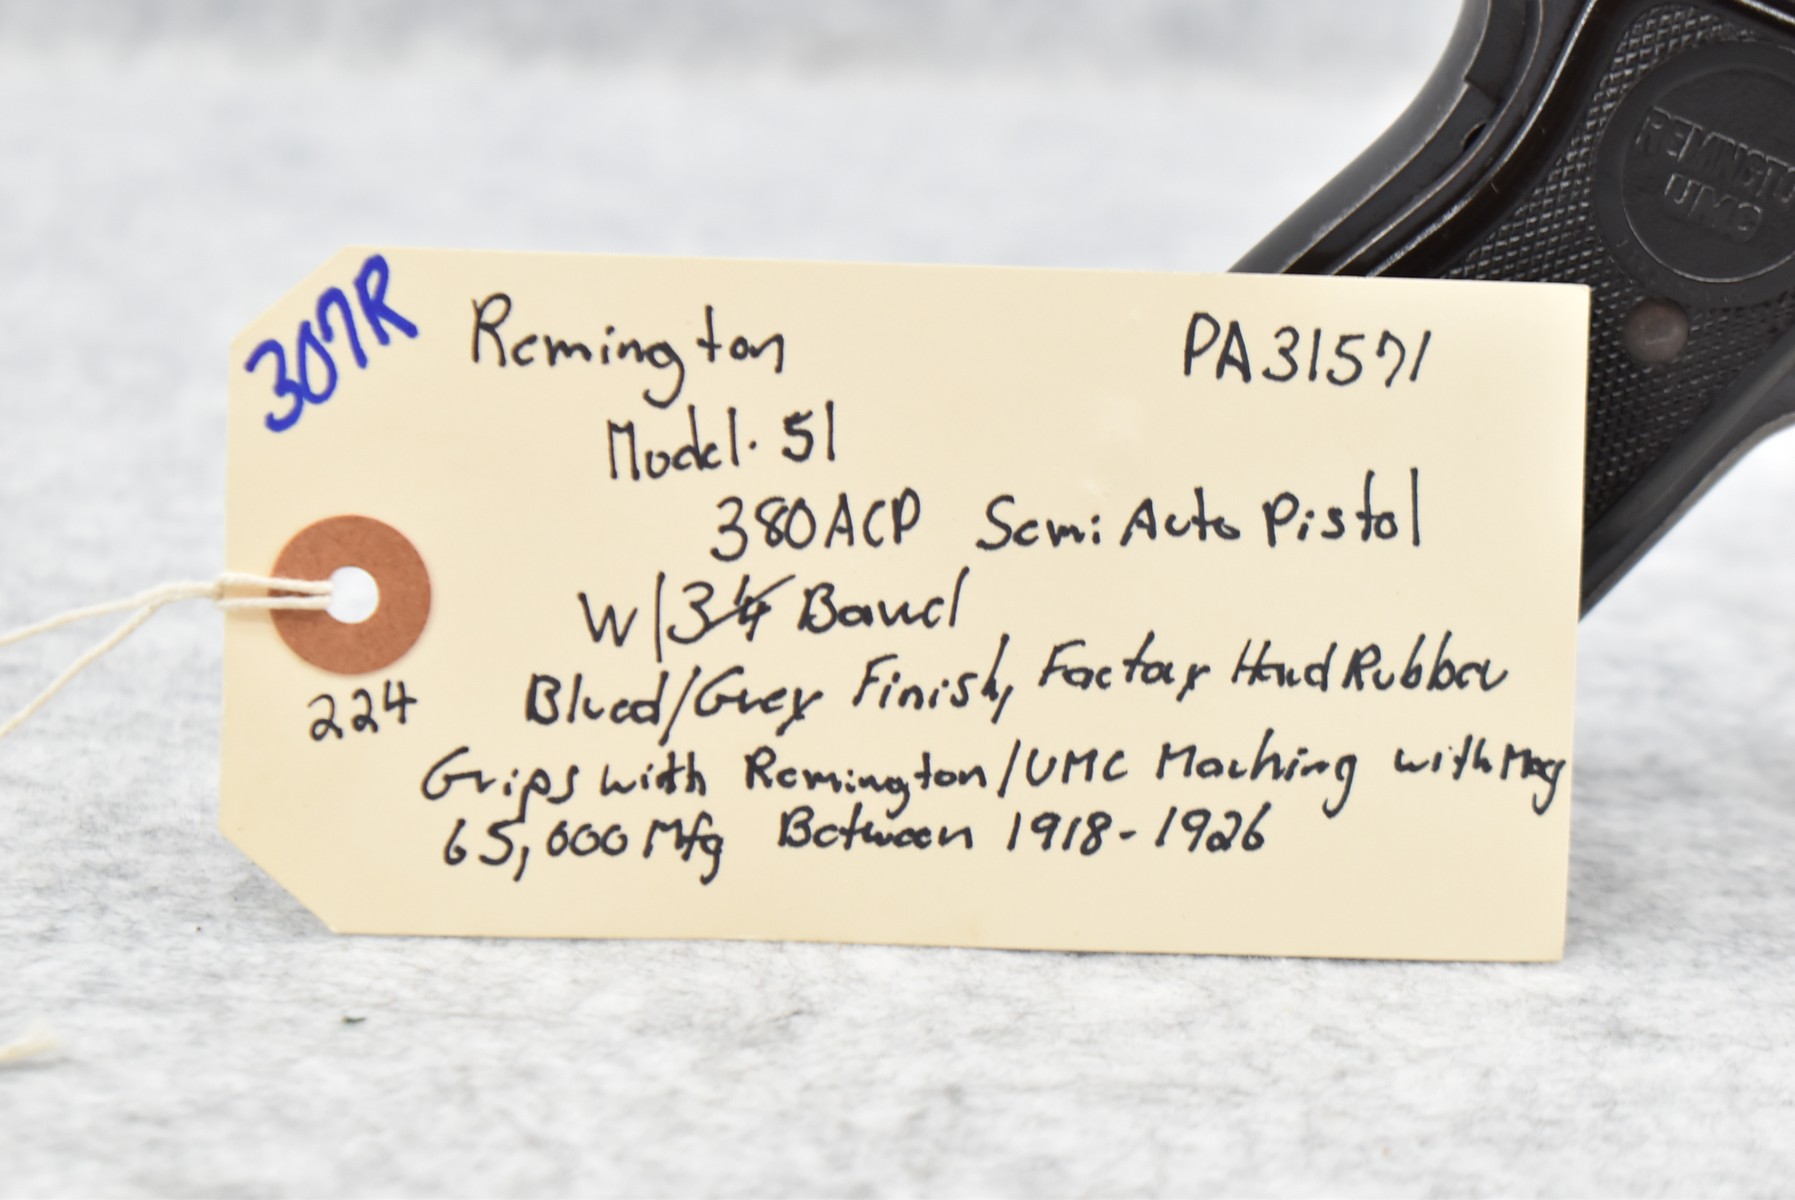 307R
Remington PA31571
Model. 51
380ACP Semi Auto Pistol
W/3 1/4 Barrel
Blued/Grey Finish, Factory Hard Rubber
Grips with Remington/UMC Marking with Mag
65,000 Mfg Between 1918-1926
224
REMINGTO
UMC